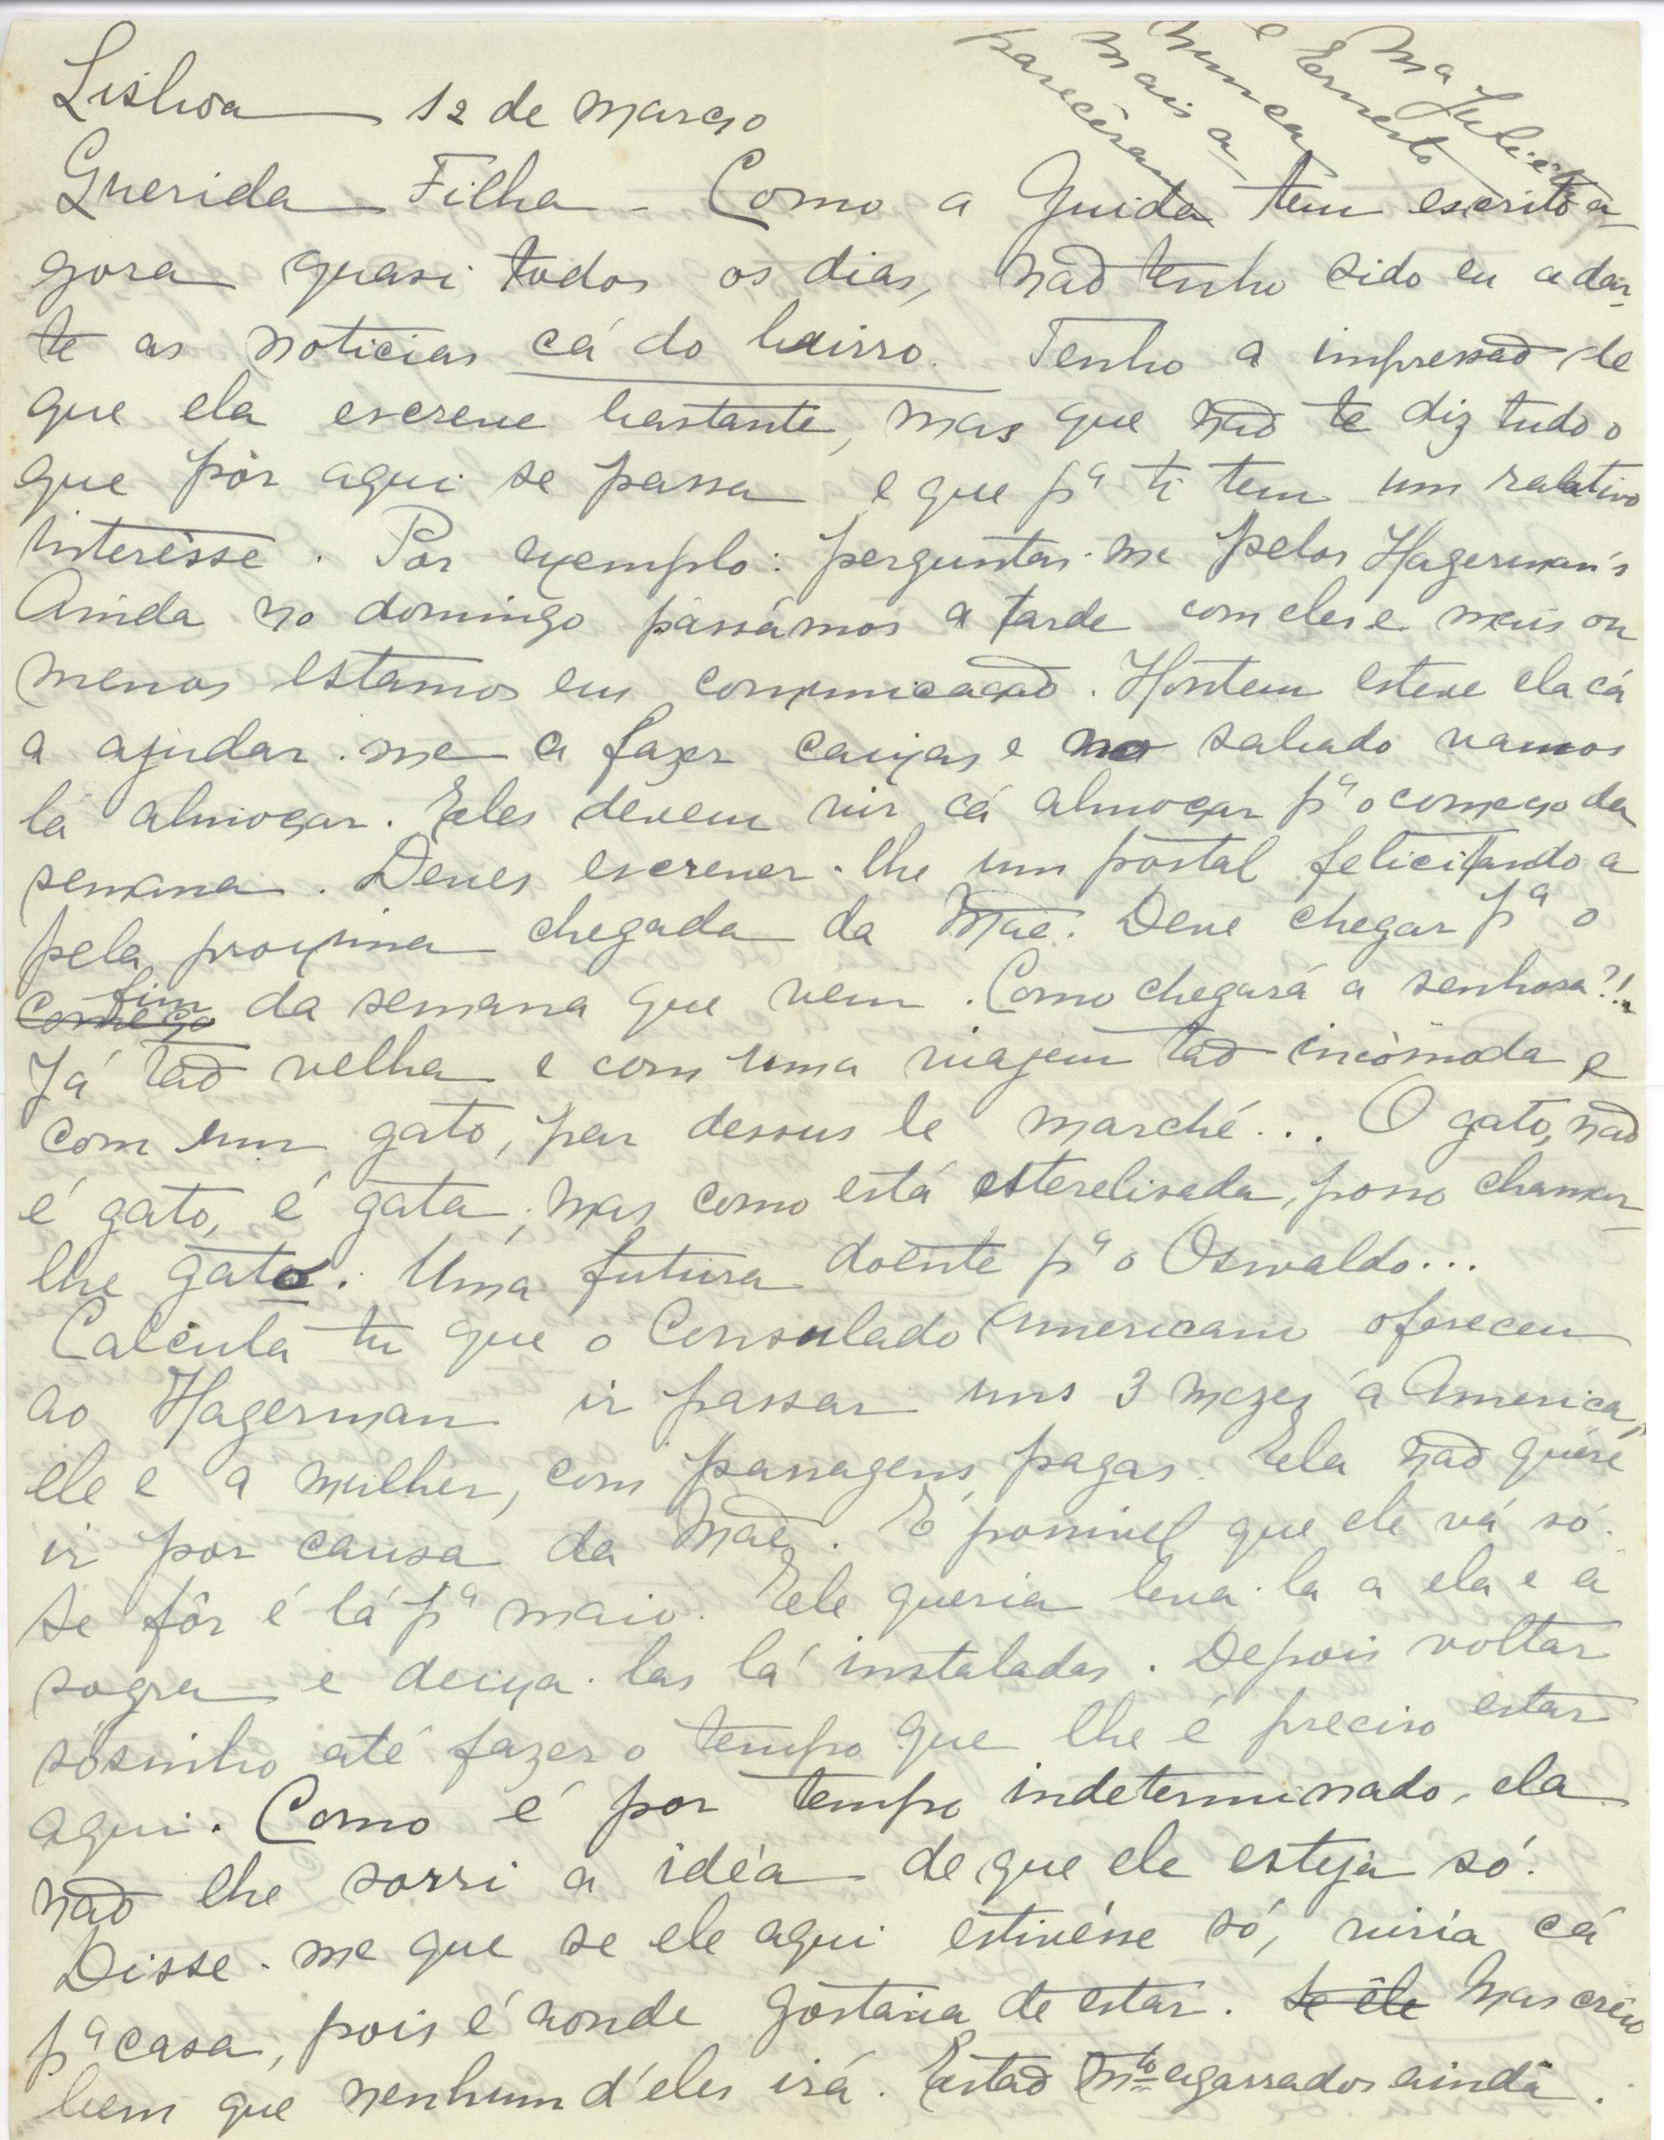 Mª Julia
e Ernesto
nunca
mais a-
parecêram
Lisboa 12 de Março
Querida Filha - Como a Guida tem escrito a-
gora quasi todos os dias, não tenho sido eu a dar-
te as noticias cá do bairro. Tenho a impressão de
que ela escreve bastante, mas que não te diz tudo o
que pòr aqui se passa e que pª ti tem um relativo
interêsse. Por exemplo: perguntas-me pelos Hagerman's
Ainda no domingo passámos a tarde com eles e mais ou
menos estamos em comunicação. Hontem esteve ela cá
a ajudar-me a fazer caixas e no sabado vamos
lá almoçar. Eles devem vir cá almoçar pª o começo da
semana. Deves escrever-lhe um postal felicitando a
pela proxima chegada da Mãe. Deve chegar pª o
começo fim da semana que vem. Como chegará a senhora?!
Já tão velha e com uma viajem tão incòmoda e
com um gato, par dessus le marché... O gato, não
é gato, é gata; mas como está esterelisada, posso chamar-
lhe gato. Uma futura doente pª o Oswaldo...
Calcula tu que o Consulado Americano ofereceu
ao Hagerman ir passar uns 3 mezes á America,
ele e a mulher, com passagens pagas. Ela não quere
ir por causa da Mãe. É possivel que ele vá só.
Se fôr é lá pª maio. Ele queria leva-la a ela e á
sogra e deixa-las lá instaladas. Depois voltar
sósinho até fazer o tempo que lhe é preciso estar
aqui. Como é por tempo indeterminado, ela
não lhe sorri a idéa de que ele esteja só.
Disse-me que se ele aqui estivésse só, viria cá
pª casa, pois é aonde gostaria de estar. Se êle Mas creio
bem que nenhum d'eles irá. Estão mto agarrados ainda.